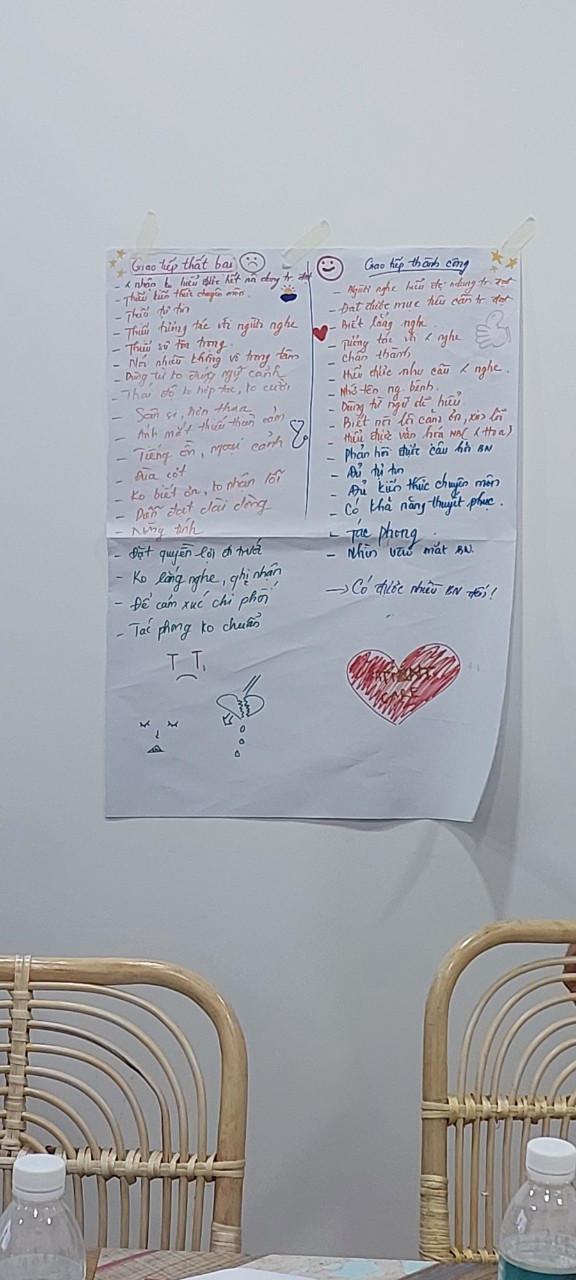 Giao tiếp thất bại
- Thiếu kiến thức chuyên môn.
- Thiếu tự tin
- Thiếu tương tác với người nghe
- Thiếu sự tôn trọng.
- Nói nhiều không vô trọng tâm
- Dùng từ ko đúng ngữ cảnh
- Thái độ ko hợp tác, ko cười
- Sân si, hơn thua
- Ánh mắt thiếu thiện cảm
- Tiếng ồn, ngoại cảnh
- Đùa cợt
- Ko biết ơn, ko nhận lỗi
- Diễn đạt dài dòng
- Nóng tính
- Đặt quyền lợi đi trước
- Ko lắng nghe, ghi nhận
- Để cảm xúc chi phối
- Tác phong ko chuẩn
Giao tiếp thành công
- Người nghe hiểu đc nội dung tr đạt
- Đạt được mục tiêu cần tr đạt
- Biết lắng nghe
- Tương tác với ng nghe
- Chân thành
- Hiểu được nhu cầu ng nghe.
- Nhớ tên ng bệnh.
- Dùng từ ngữ dễ hiểu
- Biết nói lời cảm ơn, xin lỗi
- Hiểu được văn hóa
- Phản hồi được câu hỏi BN
- Đủ tự tin
- Đủ kiến thức chuyên môn
- Có khả năng thuyết phục.
- Tác phong.
- Nhìn vào mắt BN.
→ Có được nhiều BN
PATIENT
CARE